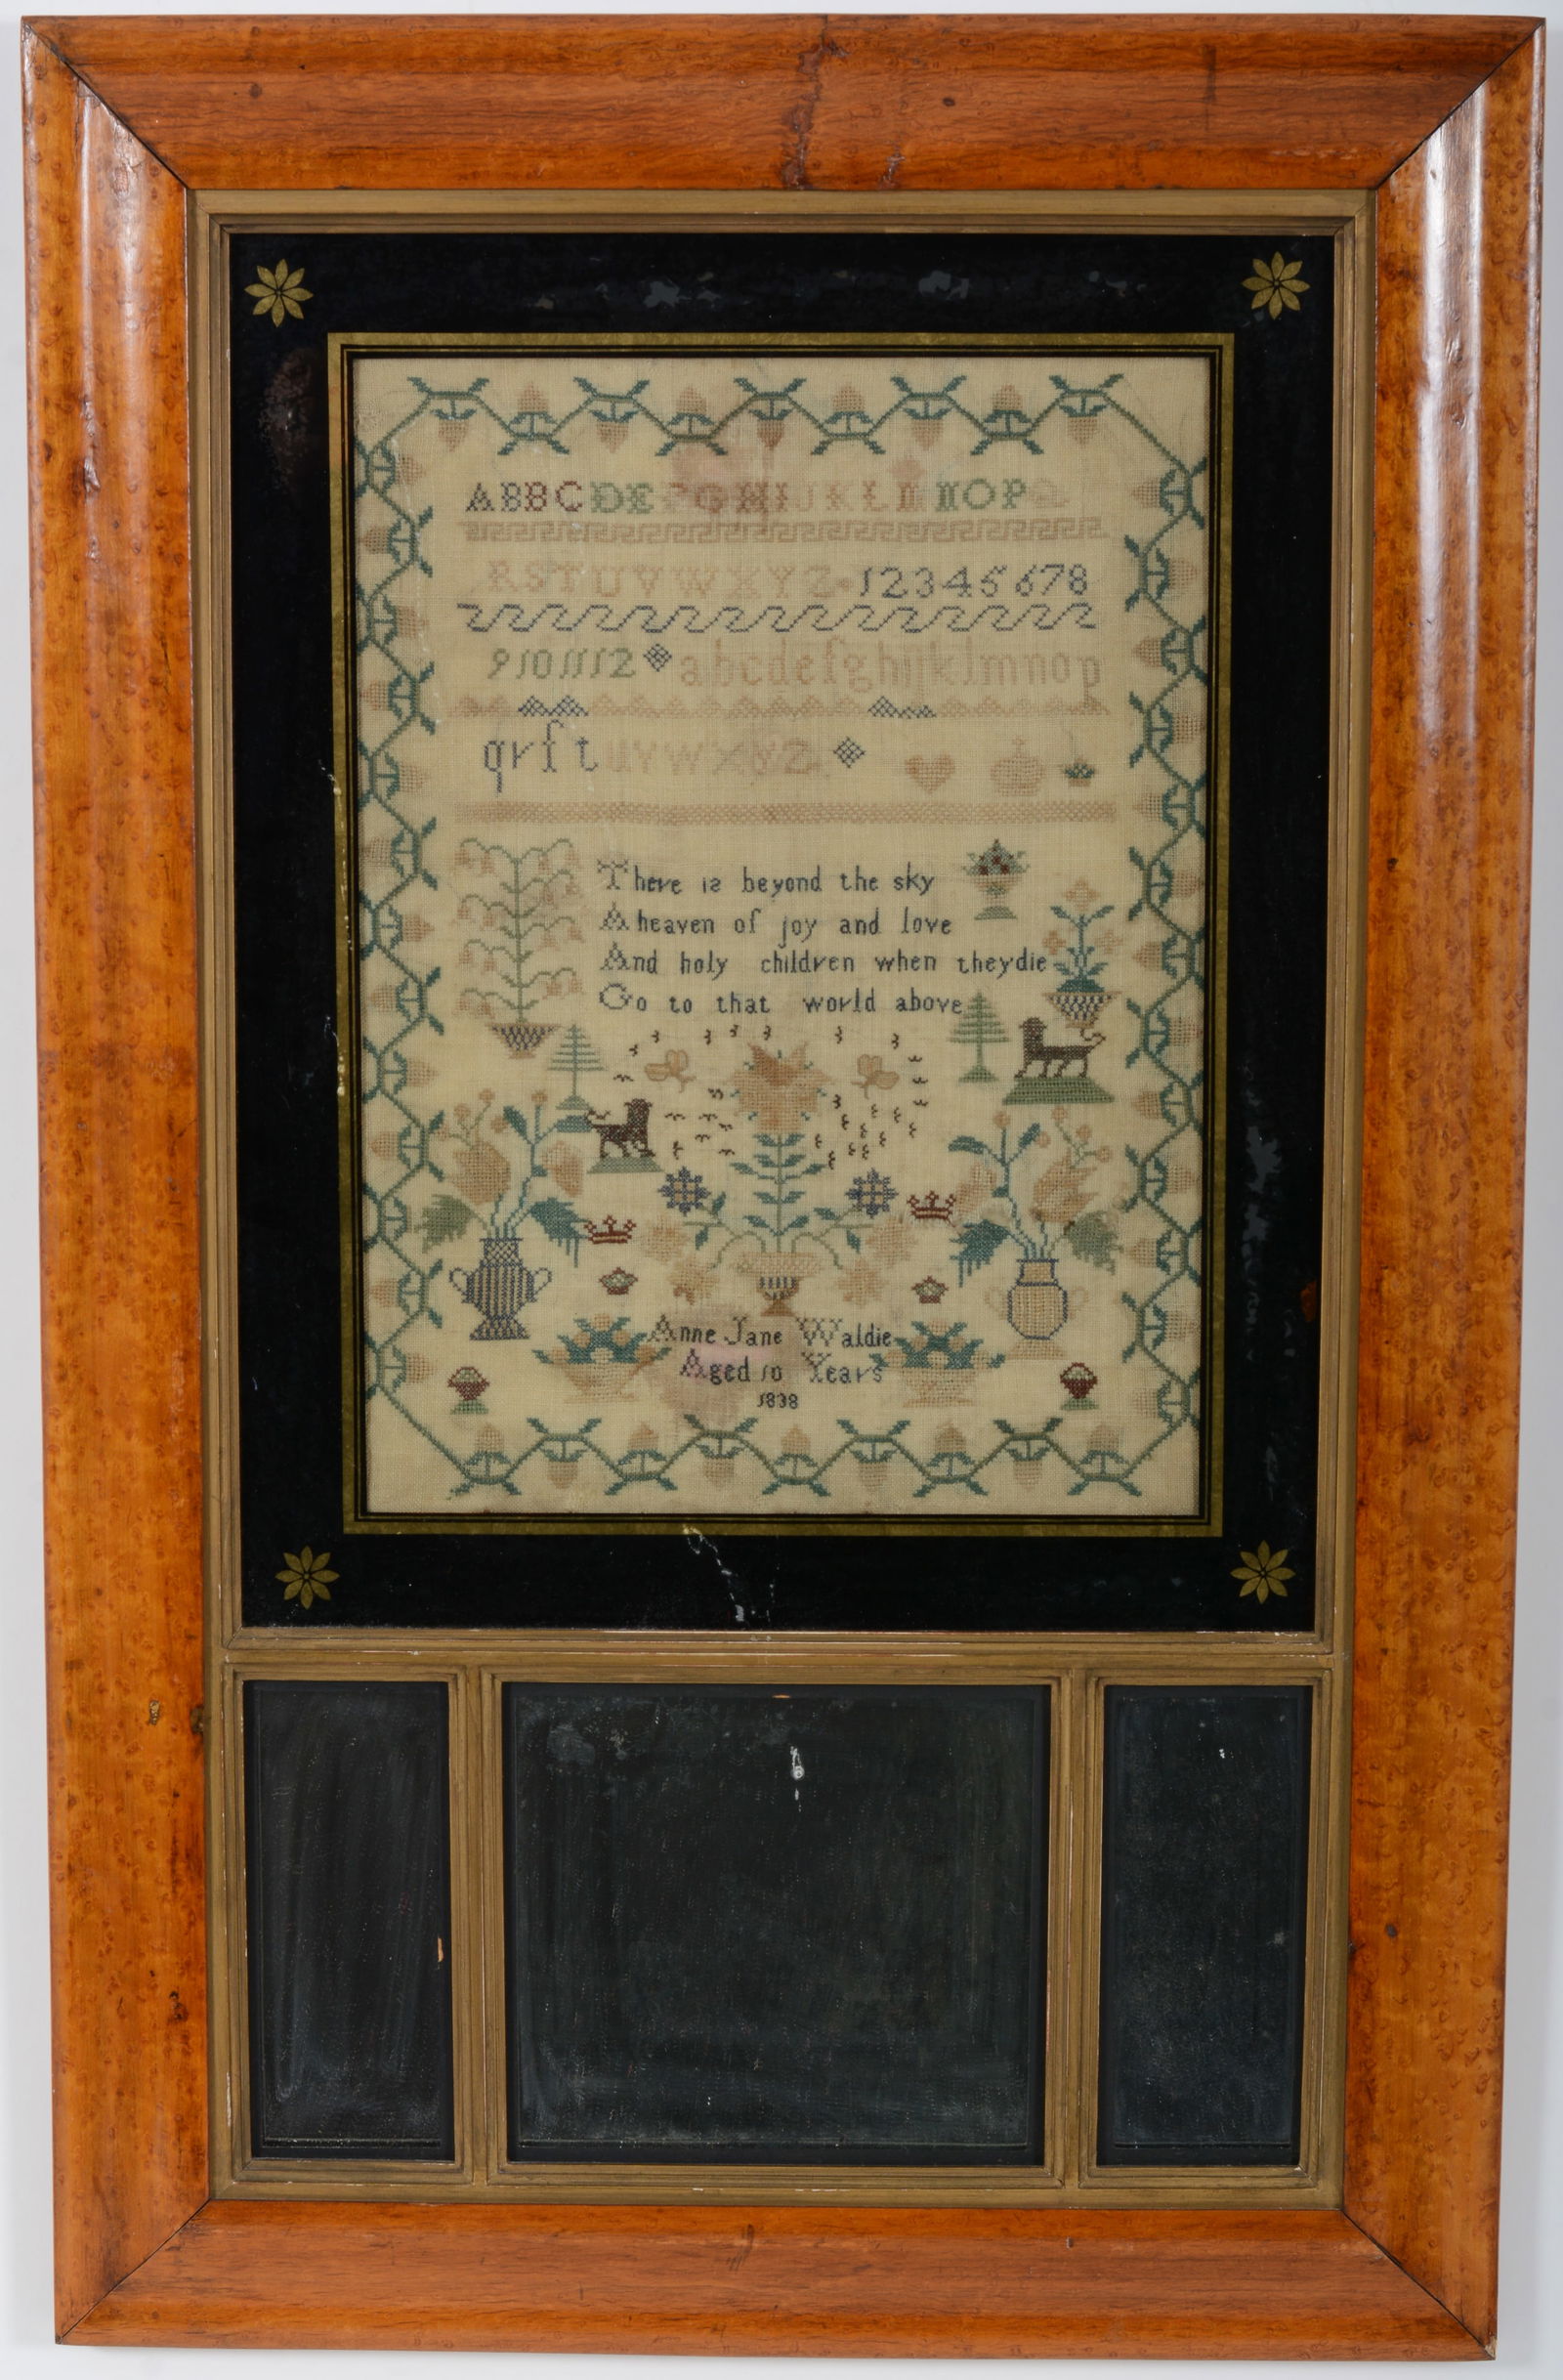 ABBCDEFGHIJKLMNOPQ
RSTUVWXYZ 12345678
9101112 abcdefghijklmnop
qrſtuvwxyz
There is beyond the sky
A heaven of joy and love
And holy children when theydie
Go to that world above
Anne Jane Waldie
Aged 10 Years
1838